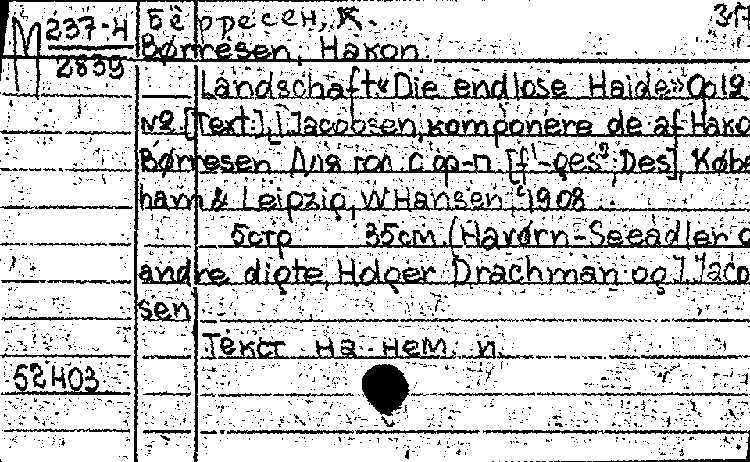 М 237-4 Бёрресен, Х. 317
2839 Børresen, Hakon.
Landschaft "Die endlose Haide" Op 12
№2 [Text:], J Jacobsen, komponere de af Hako
Børresen Для гол с ф-п [f'-ges² Des], Købe
havn & Leipzig, W Hansen, 1908
5 стр 35 cm. (Havørn-Seeadler o
andre digte, Holger Drachman og J Jaco
sen
Текст на нем. я.
52 НОЗ